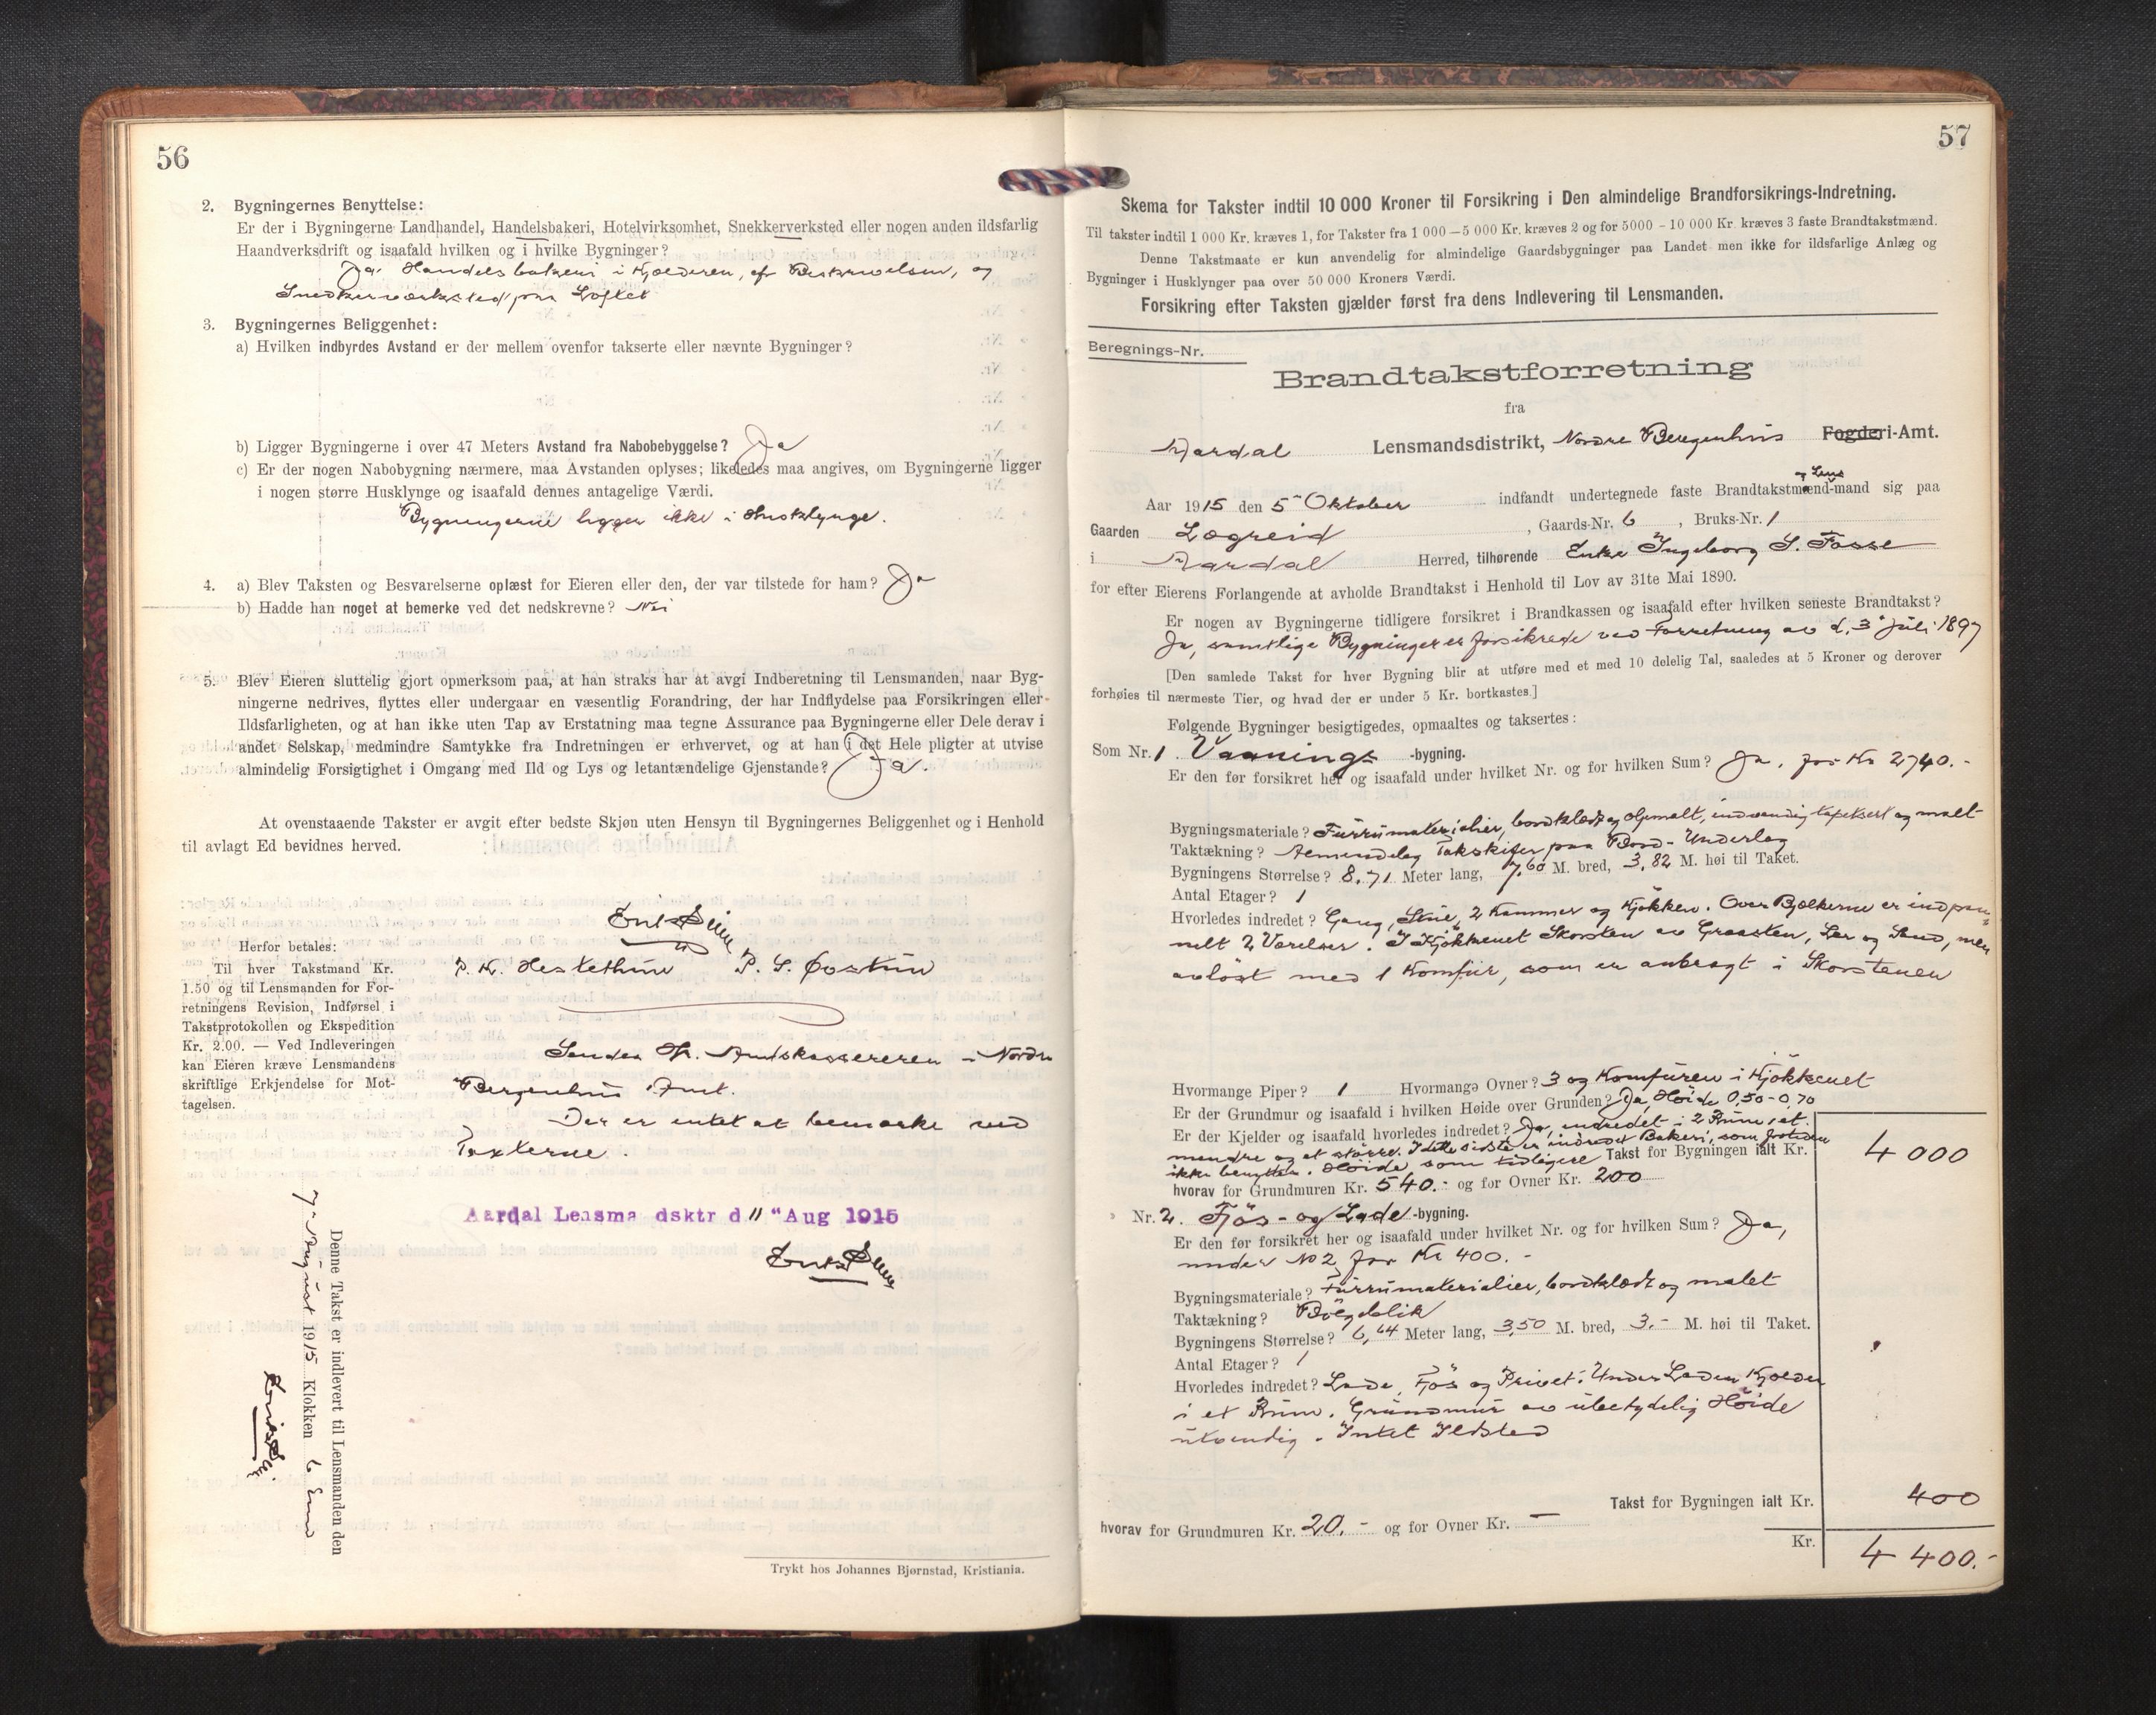 56
2. Bygningernes Benyttelse:
Er der i Bygningerne Landhandel, Handelsbakeri, Hotelvirksomhet, Snekkerverksted eller nogen anden ildsfarlig
Haandverksdrift og isaafald hvilken og i hvilke Bygninger?
Ja. Handelsbakeri i Kjælderen, cfr Beskrivelsen, og
Snedkerværksted paa Loftet
3. Bygningernes Beliggenhet:
a) Hvilken indbyrdes Avstand er der mellem ovenfor takserte eller nævnte Bygninger?
b) Ligger Bygningerne i over 47 Meters Avstand fra Nabobebyggelse? Ja
c) Er der nogen Nabobygning nærmere, maa Avstanden oplyses; likeledes maa angives, om Bygningerne ligger
i nogen større Husklynge og isaafald dennes antagelige Værdi.
Bygningerne ligger ikke i Husklynge.
4. a) Blev Taksten og Besvarelserne oplæst for Eieren eller den, der var tilstede for ham? Ja
b) Hadde han noget at bemerke ved det nedskrevne? Nei
5. Blev Eieren sluttelig gjort opmerksom paa, at han straks har at avgi Indberetning til Lensmanden, naar Byg-
ningerne nedrives, flyttes eller undergaar en væsentlig Forandring, der har Indflydelse paa Forsikringen eller
Ildsfarligheten, og at han ikke uten Tap av Erstatning maa tegne Assurance paa Bygningerne eller Dele derav i
andet Selskap, medmindre Samtykke fra Indretningen er erhvervet, og at han i det Hele pligter at utvise
almindelig Forsigtighet i Omgang med Ild og Lys og letantændelige Gjenstande? Ja.
At ovenstaaende Takster er avgit efter bedste Skjøn uten Hensyn til Bygningernes Beliggenhet og i Henhold
til avlagt Ed bevidnes herved.
P. K. Hestethun P. S. Øvstun
Herfor betales:
Til hver Takstmand Kr.
1.50 og til Lensmanden for For-
retningens Revision, Indførsel i
Takstprotokollen og Ekspedition
Kr. 2.00. — Ved Indleveringen
kan Eieren kræve Lensmandens
skriftlige Erkjendelse for Mot-
tagelsen.
Sendes Hr. Amtskassereren i Nordre
Bergenhus Amt.
Der er intet at bemærke ved
Taxterne.
Aardal Lensma dsktr d 11 " Aug 1915
Denne Takst er indlevert til Lensmanden den
7 August 1915 Klokken 6 Em
Trykt hos Johannes Bjørnstad, Kristiania.
57
Skema for Takster indtil 10 000 Kroner til Forsikring i Den almindelige Brandforsikrings-Indretning.
Til takster indtil 1 000 Kr. kræves 1, for Takster fra 1 000 — 5 000 Kr. kræves 2 og for 5000 - 10 000 Kr. kræves 3 faste Brandtakstmænd.
Denne Takstmaate er kun anvendelig for almindelige Gaardsbygninger paa Landet men ikke for ildsfarlige Anlæg og
Bygninger i Husklynger paa over 50 000 Kroners Værdi.
Forsikring efter Taksten gjælder først fra dens Indlevering til Lensmanden.
Beregnings-Nr.
Brandtakstforretning
fra
Aardal Lensmandsdistrikt, Nordre Bergenhus Fogderi-Amt.
og Lens
Aar 1915 den 5" Oktober indfandt undertegnede faste Brandtakstmænd-mand sig paa
Gaarden Lægreid, Gaards-Nr. 6, Bruks-Nr. 1
i Aardal Herred, tilhørende Enke Ingeborg S. Fosse
for efter Eierens Forlangende at avholde Brandtakst i Henhold til Lov av 31te Mai 1890.
Er nogen av Bygningerne tidligere forsikret i Brandkassen og isaafald efter hvilken seneste Brandtakst?
Ja, samtlige Bygninger er forsikrede ved Forretning av d. 3" Juli 1897
[Den samlede Takst for hver Bygning blir at utføre med et med 10 delelig Tal, saaledes at 5 Kroner og derover
forhøies til nærmeste Tier, og hvad der er under 5 Kr. bortkastes.]
Følgende Bygninger besigtigedes, opmaaltes og taksertes:
Som Nr. 1. Vaanings -bygning.
Er den før forsikret her og isaafald under hvilket Nr. og for hvilken Sum? Ja, for Kr 2740.-
Bygningsmateriale? Furrumaterialier, bordklædt og oljemalt, indvendig tapetsert og malt
Taktækning? Almindelig Takskifer paa Bord-Underlag
Bygningens Størrelse? 8,71 Meter lang, 7,60 M. bred, 3,82 M. høi til Taket.
Antal Etager? 1
Hvorledes indredet? Gang, Stue, 2 Kammer og Kjøkken. Over Bjelkerne er indpan-
nelt 2 Værelser. I Kjøkkenet Skorsten av Graasten, Ler og Sand, men
avløst med 1 Komfur, som er anbragt i Skorstenen
Hvormange Piper? 1 Hvormange Ovner? 3 og Komfuren i Kjøkkenet
Er der Grundmur og isaafald i hvilken Høide over Grunden? Ja, Høide 0,50-0,70
Er der Kjelder og isaafald hvorledes indredet? Ja, indredet i 2 Rum, et
mindre og et større. I dette sidste er indredet Bakeri, som for tiden
ikke benyttes. Høide som tidligere Takst for Bygningen ialt Kr. 4 000
hvorav for Grundmuren Kr. 540.- og for Ovner Kr. 200
Nr. 2. Fjøs- og Lade -bygning.
Er den før forsikret her og isaafald under hvilket Nr. og for hvilken Sum? Ja,
under No 2 for Kr 400.-
Bygningsmateriale? Furrumaterialier, bordklædt og malet
Taktækning? Bølgeblik
Bygningens Størrelse? 6,44 Meter lang, 3,50 M. bred, 3.- M. høi til Taket.
Antal Etager? 1
Hvorledes indredet? Lade, Fjøs og Privet. Under Laden Kjælder
i et Rum. Grundmur av ubetydelig Høide
utvendig. Intet Ildsted
Takst for Bygningen ialt Kr. 400
hvorav for Grundmuren Kr. 20.- og for Ovner Kr. —
Kr. 4 400.-